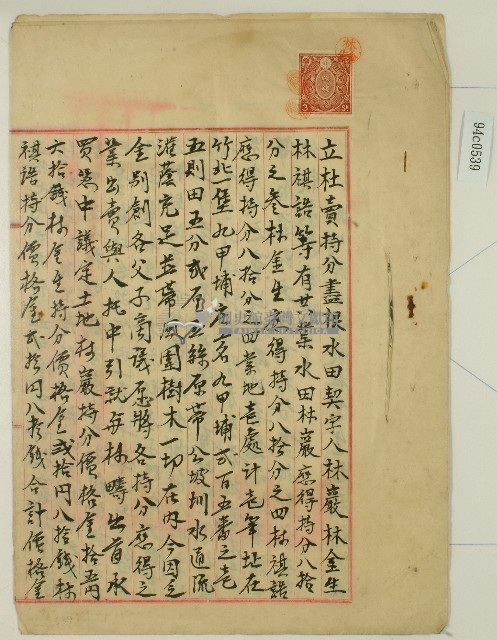 立杜賣持分盡根水田契字人林巖林金生
林祺語等有共業水田林巖應得持分八拾
分之叁林金生應得持分八拾分之四林祺語
應得持分八拾分之四業地壹處計壹筆址在
竹北一堡九甲埔庄土名九甲埔弍百五番之壱
五則田五分弍厘 絲原帶公坡圳水通流
灌蔭充足並帶 園樹木一切在內今因乏
金別創各父子商議愿將各持分應得之
業出賣與人托中引就與林疇出首承
買憑中議定土地林巖持分價格金拾五円
六拾錢林金生持分價格金弍拾円八拾錢林
祺語持分價格金弍拾円八拾錢合計價格金
94c0539